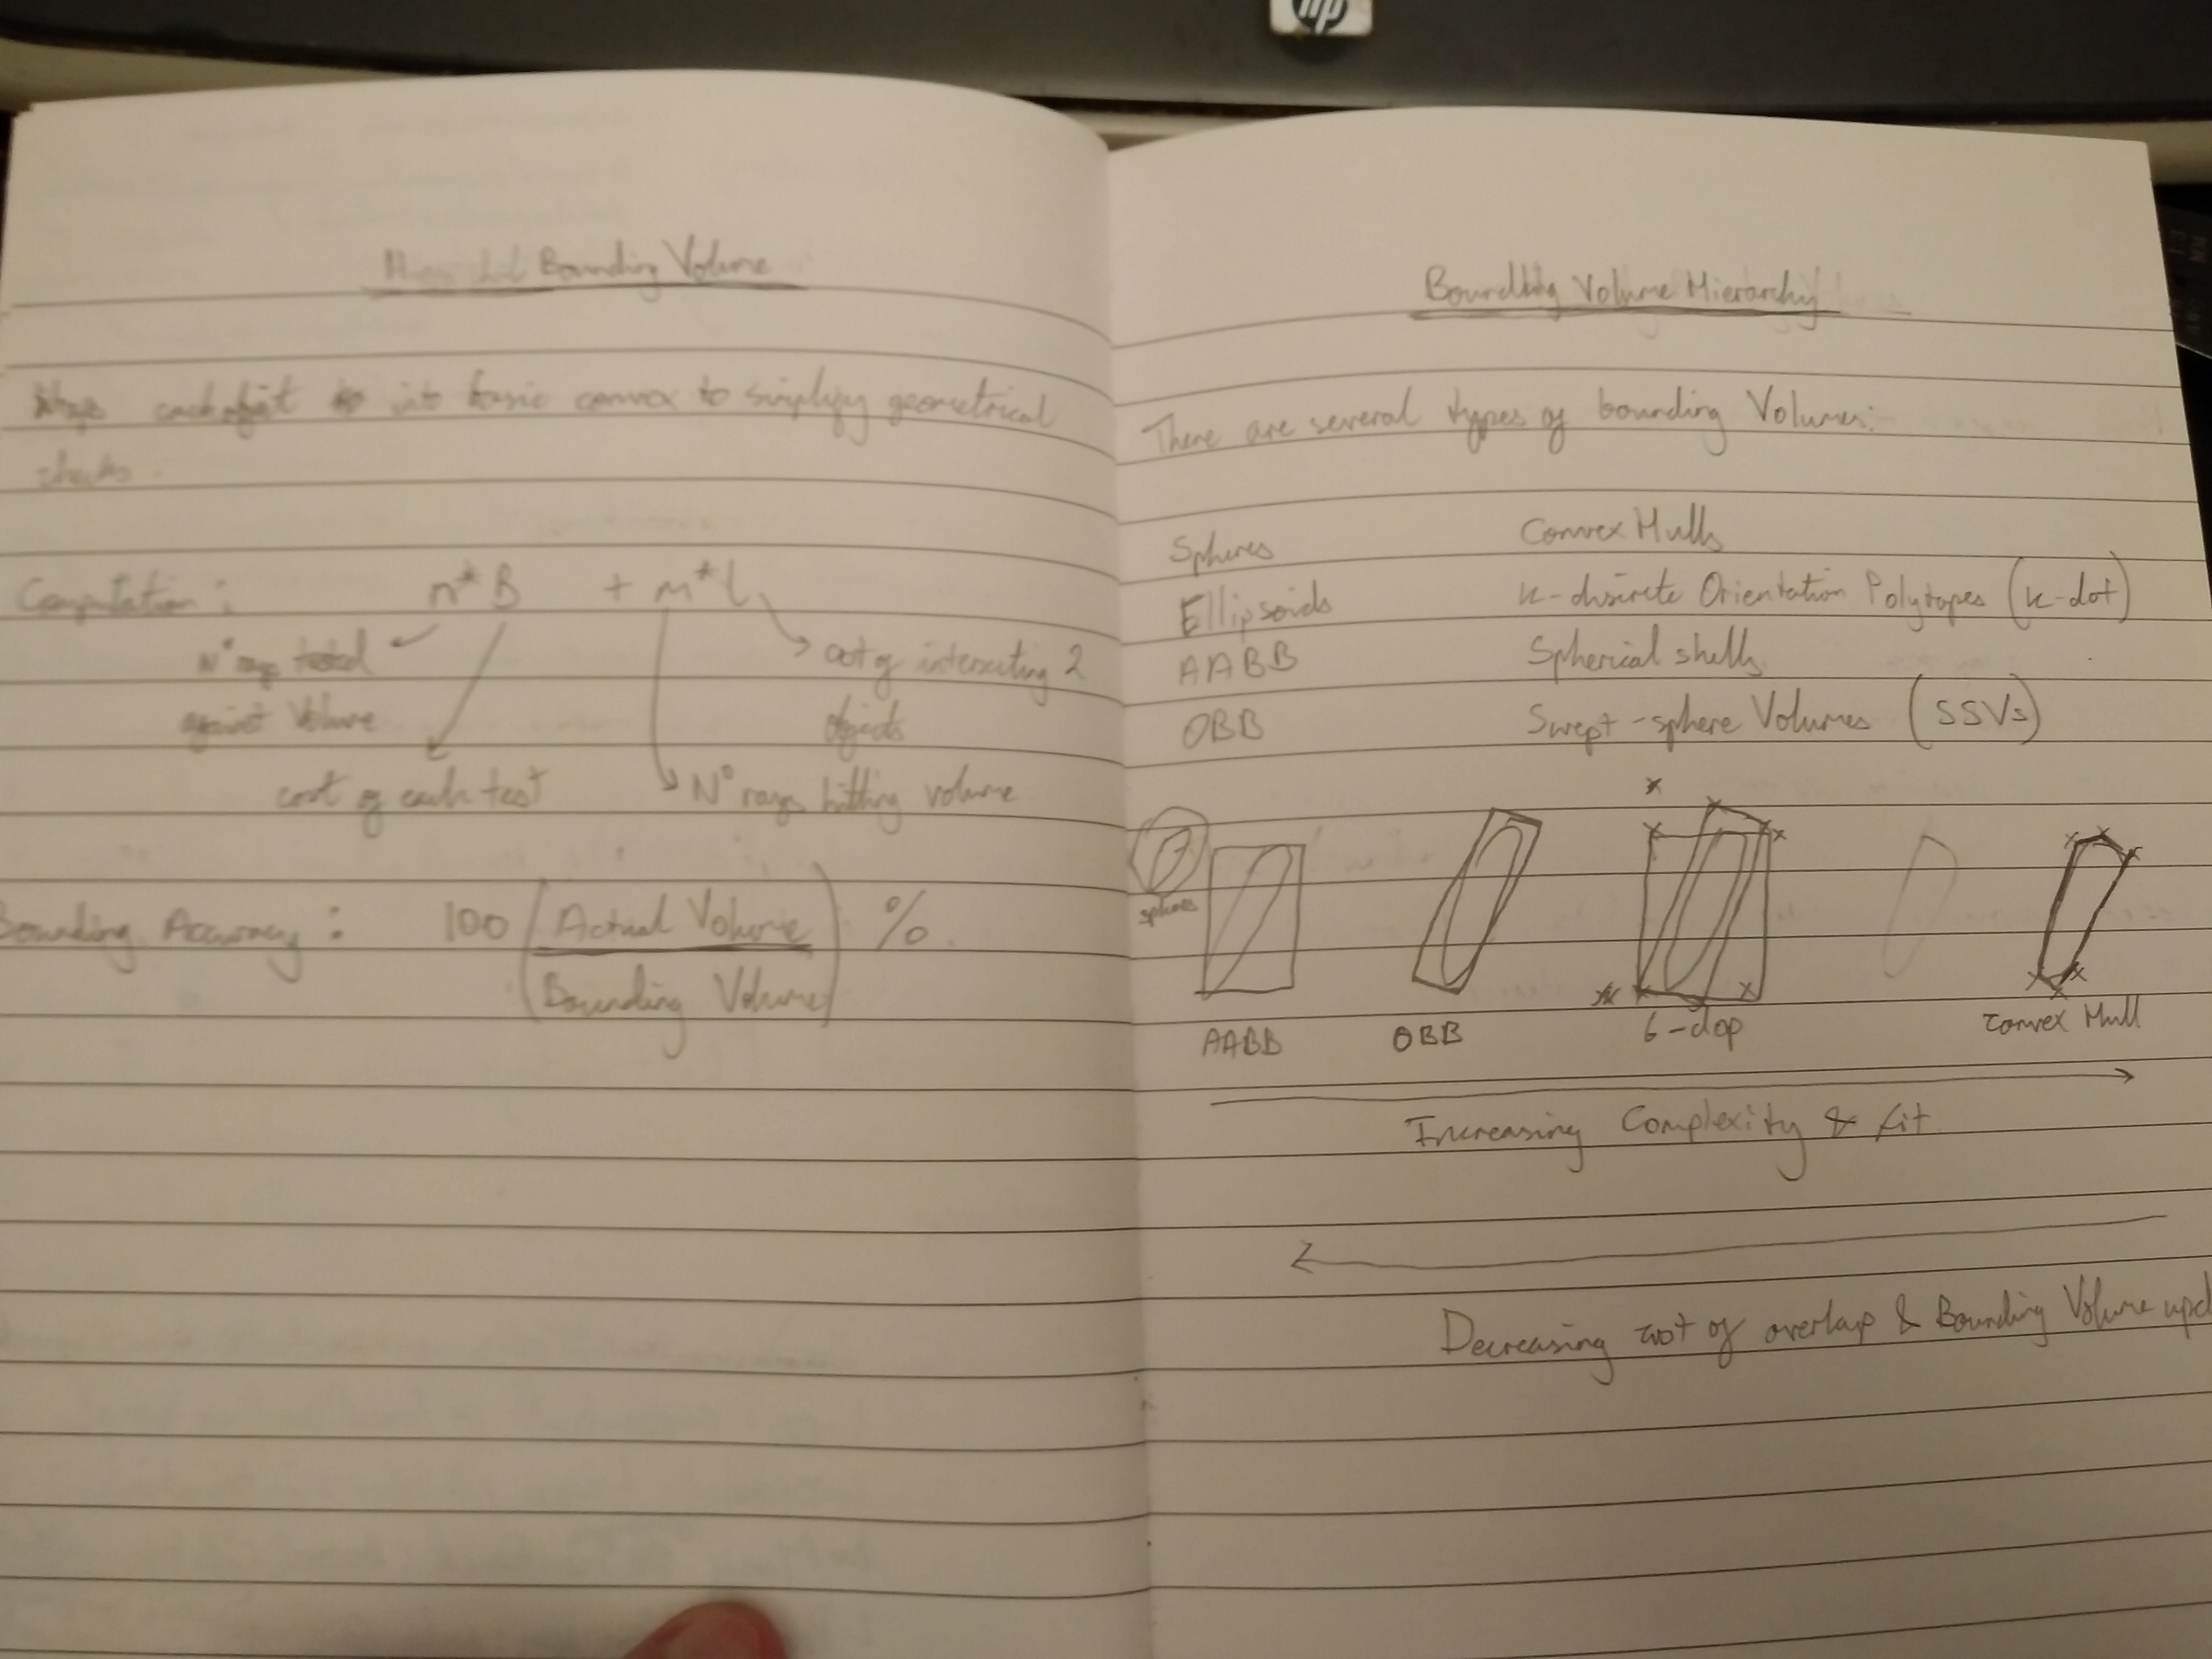 hp
Bounding Volume
each object into basic convex to simplify geometrical
checks.
Computation: n* B + m* l
N° rays tested
against Volume
cost of each test
N° rays hitting volume
cost of intersecting 2
objects
Bounding Accuracy: 100 (Actual Volume / Bounding Volume) %
Bounding Volume Hierarchy
There are several types of bounding Volumes:
Spheres
Ellipsoids
AABB
OBB
Convex Hulls
k-discrete Orientation Polytopes (k-dot)
Spherical shells
Swept-sphere Volumes (SSVs)
spheres
AABB
OBB
6-dop
Convex Hull
Increasing Complexity & fit
Decreasing cost of overlap & Bounding Volume upd